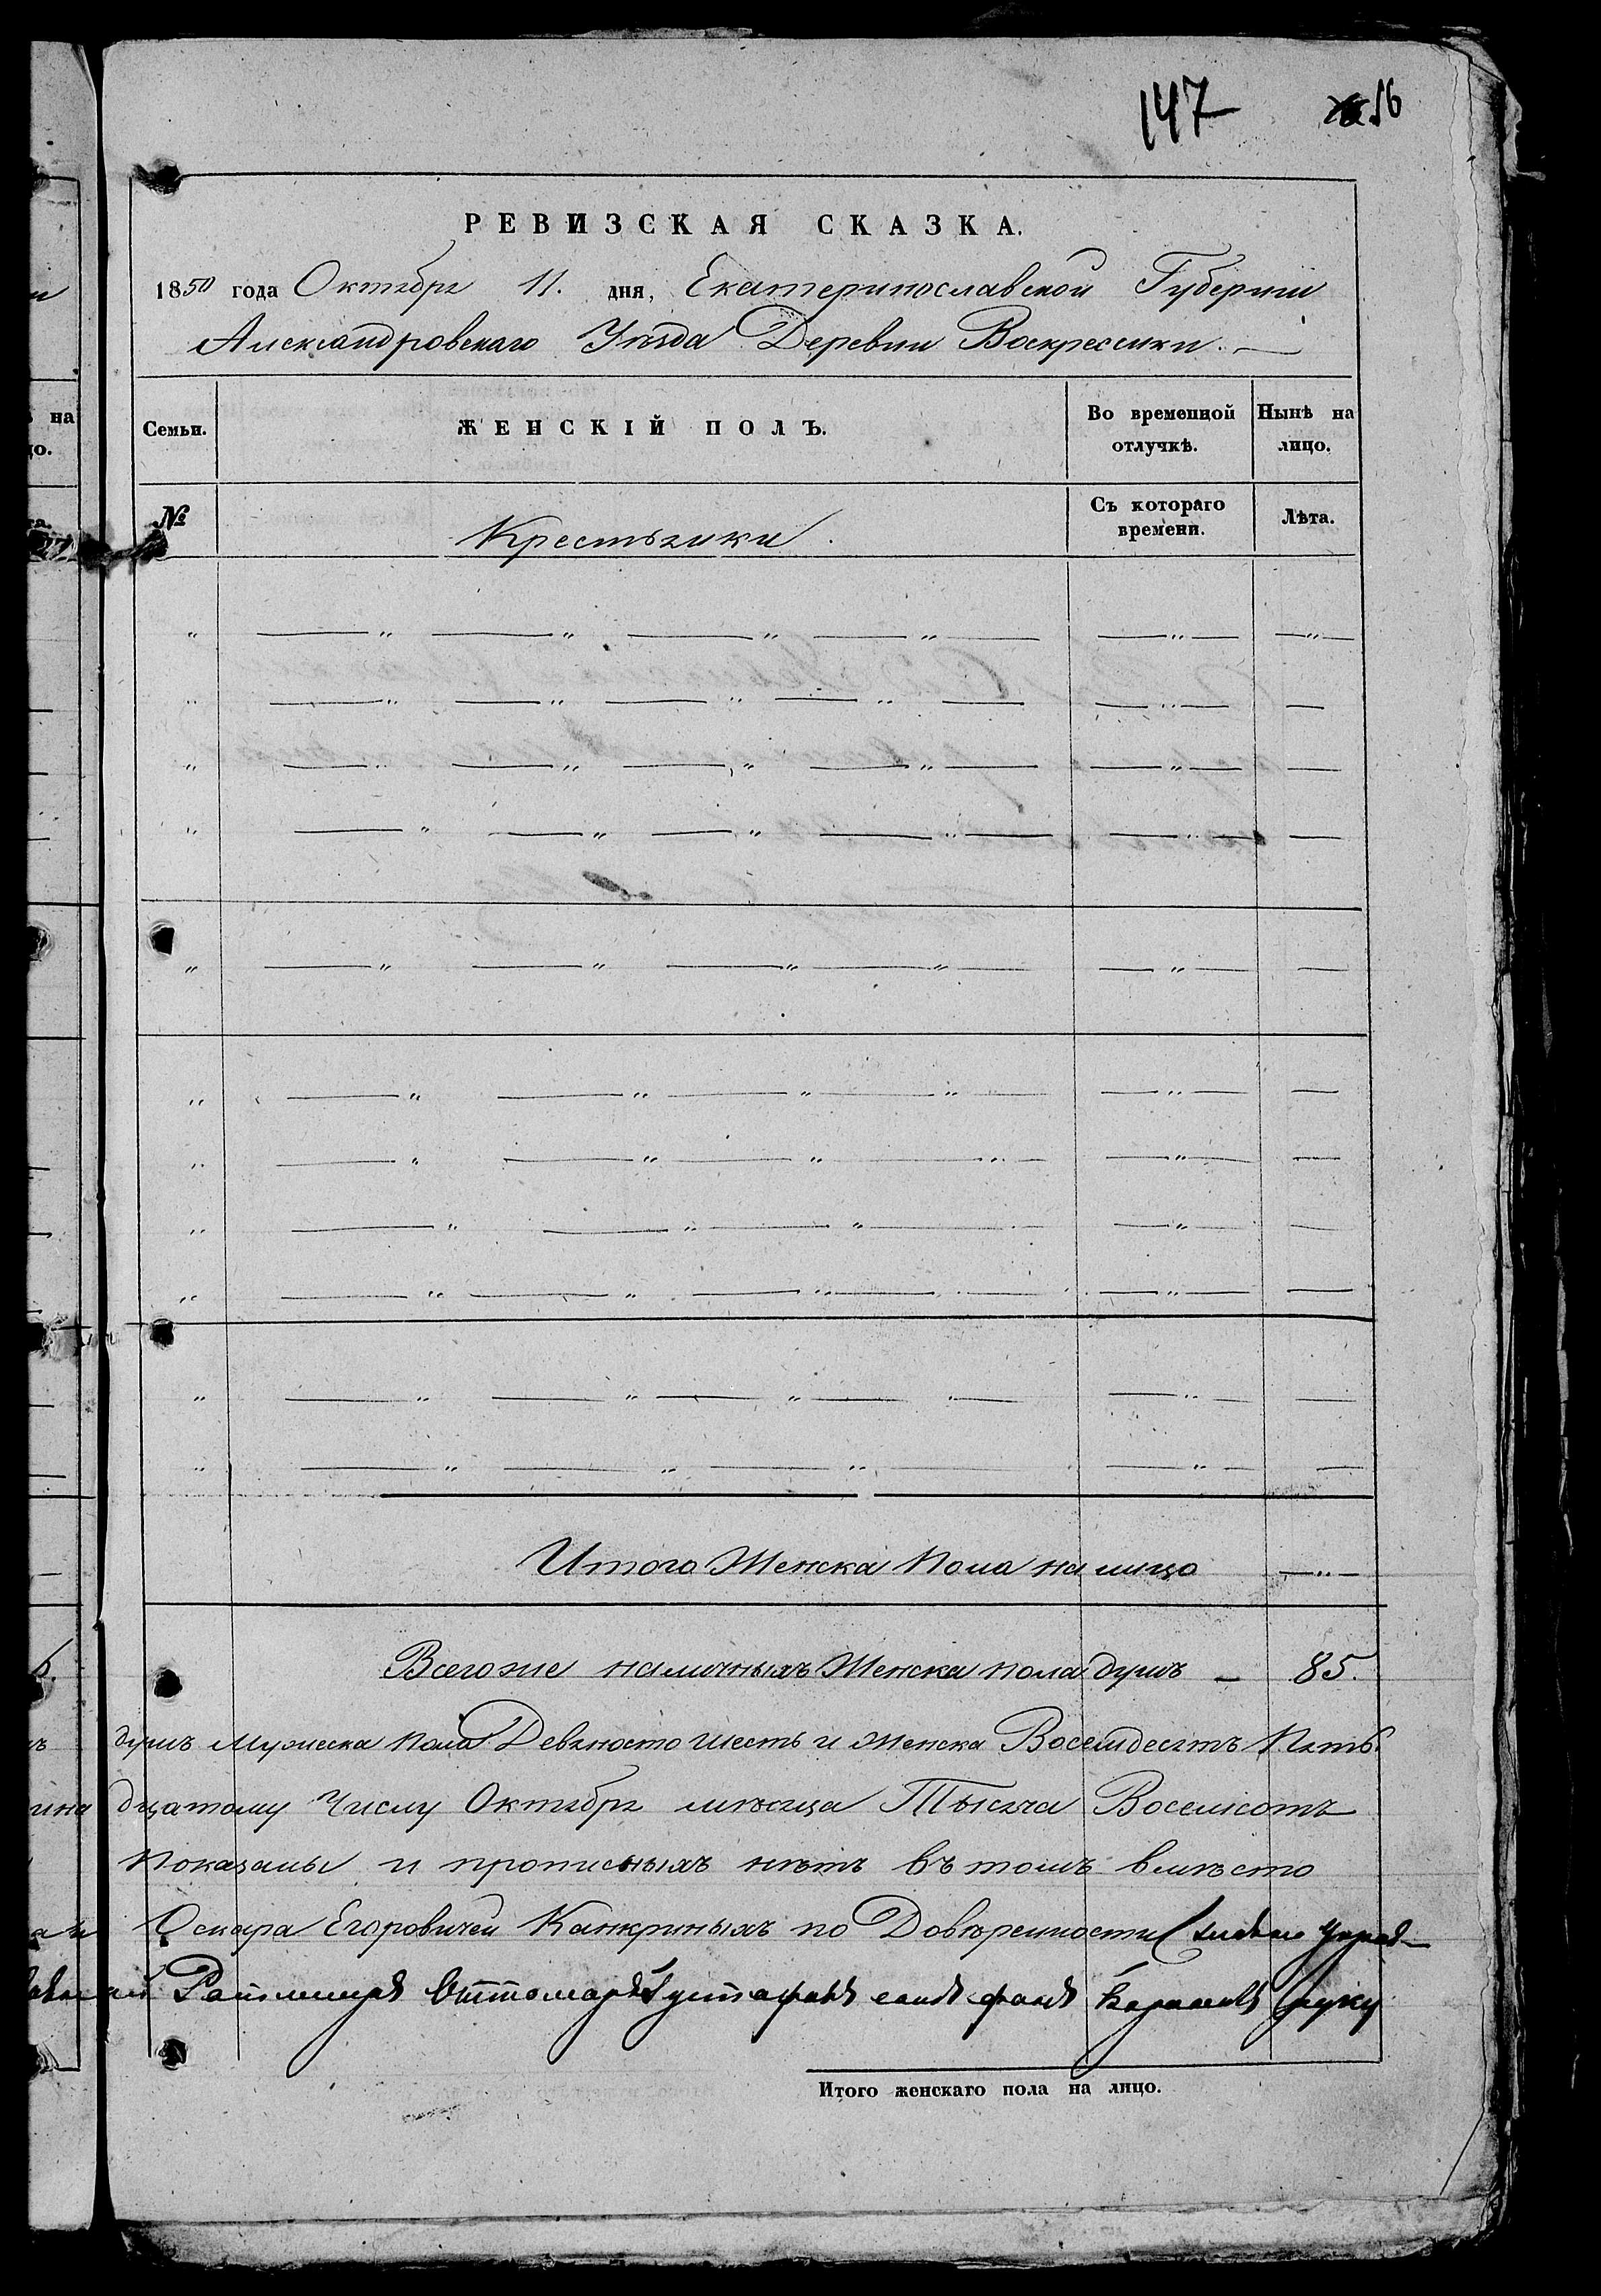 147 16
РЕВИЗСКАЯ СКАЗКА.
1850 года Октября 11. дня, Екатеринославской Губернии
Александровскаго Уѣзда Деревни Воскресенки.
Семьи. ЖЕНСКІЙ ПОЛЪ. Во временной отлучкѣ. Нынѣ на лицо.
№ Крестьянки. Съ котораго времени. Лѣта.
Итого Женска Пола на лицо
Всегоже наличныхъ Женска пола душъ 85.
душъ Мужеска Пола Девяносто шесть и Женска Восемдесятъ Пять.
дцатому Числу Октября мѣсяца Тысяча Восемсотъ
показаны и прописныхъ нѣтъ въ томъ вмѣсто
Оскара Егоровичей Канкриныхъ по Довѣренности
Густафъ руку
Итого женскаго пола на лицо.